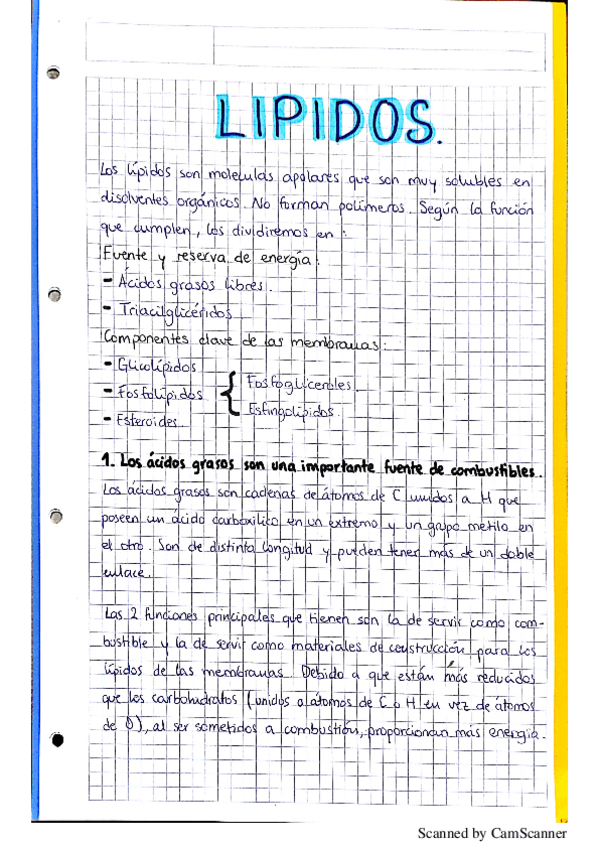 LIPIDOS.
Los lípidos son moleculas apolares que son muy solubles en
disolventes orgánicos. No forman polímeros. Según la función
que cumplen, los dividiremos en :
Fuente y reserva de energía :
- Ácidos grasos libres.
- Triacilglicéridos
Componentes clave de las membranas:
- Glicolípidos
- Fosfolípidos { Fosfogliceroles
Esfingolípidos.
- Esteroides
1. Los ácidos grasos son una importante fuente de combustibles.
Los ácidos grasos son cadenas de átomos de C unidos a H que
poseen un ácido carboxílico en un extremo y un grupo metilo en
el otro. Son de distinta longitud y pueden tener más de un doble
enlace.
Las 2 funciones principales que tienen son la de servir como com-
bustible y la de servir como materiales de construcción para los
lípidos de las membranas. Debido a que están más reducidos
que los carbohidratos (unidos a átomos de C o H en vez de átomos
de O), al ser sometidos a combustión, proporcionan más energía.
Scanned by CamScanner